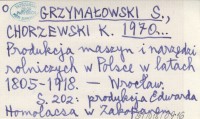 GRZYMAŁOWSKI S.,
CHORZEWSKI K. 1970...
Produkcja maszyn i narzędzi
rolniczych w Polsce w latach
1805-1918. — Wrocław.
S. 202: produkcja Edwarda
Homolacsa w Zakopanem